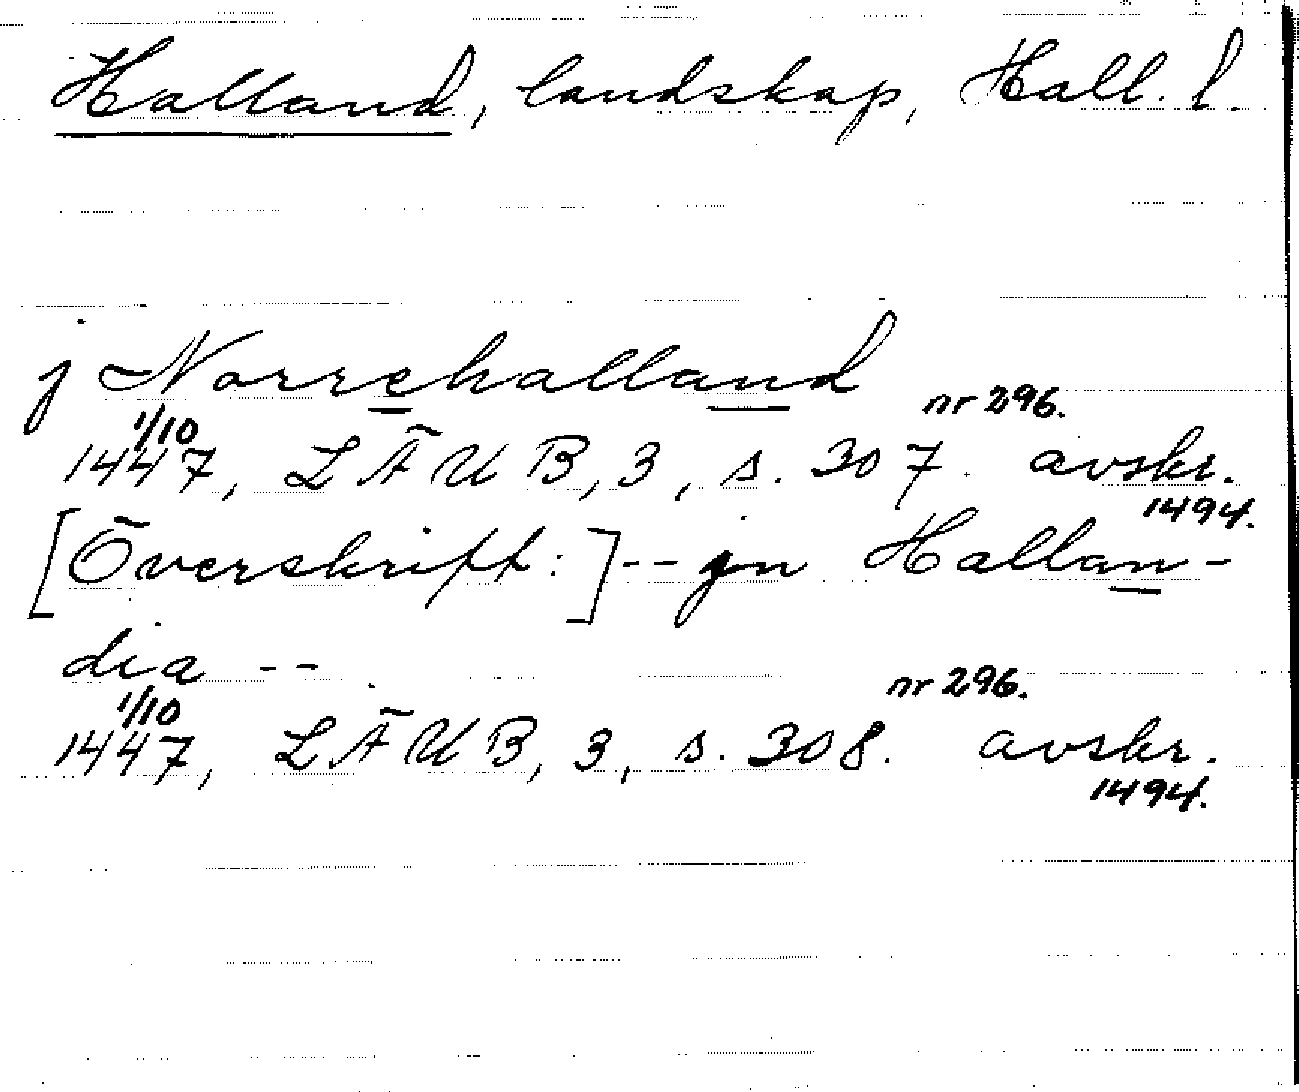 Halland, landskap, Hall. l.
j Norrehalland
1/10 nr 296.
1447, LÄUB, 3, s. 307. avskr.
1494.
[Överskrift:] -- jn Hallan-
dia --
1/10 nr 296.
1447, LÄUB, 3, s. 308. avskr.
1494.